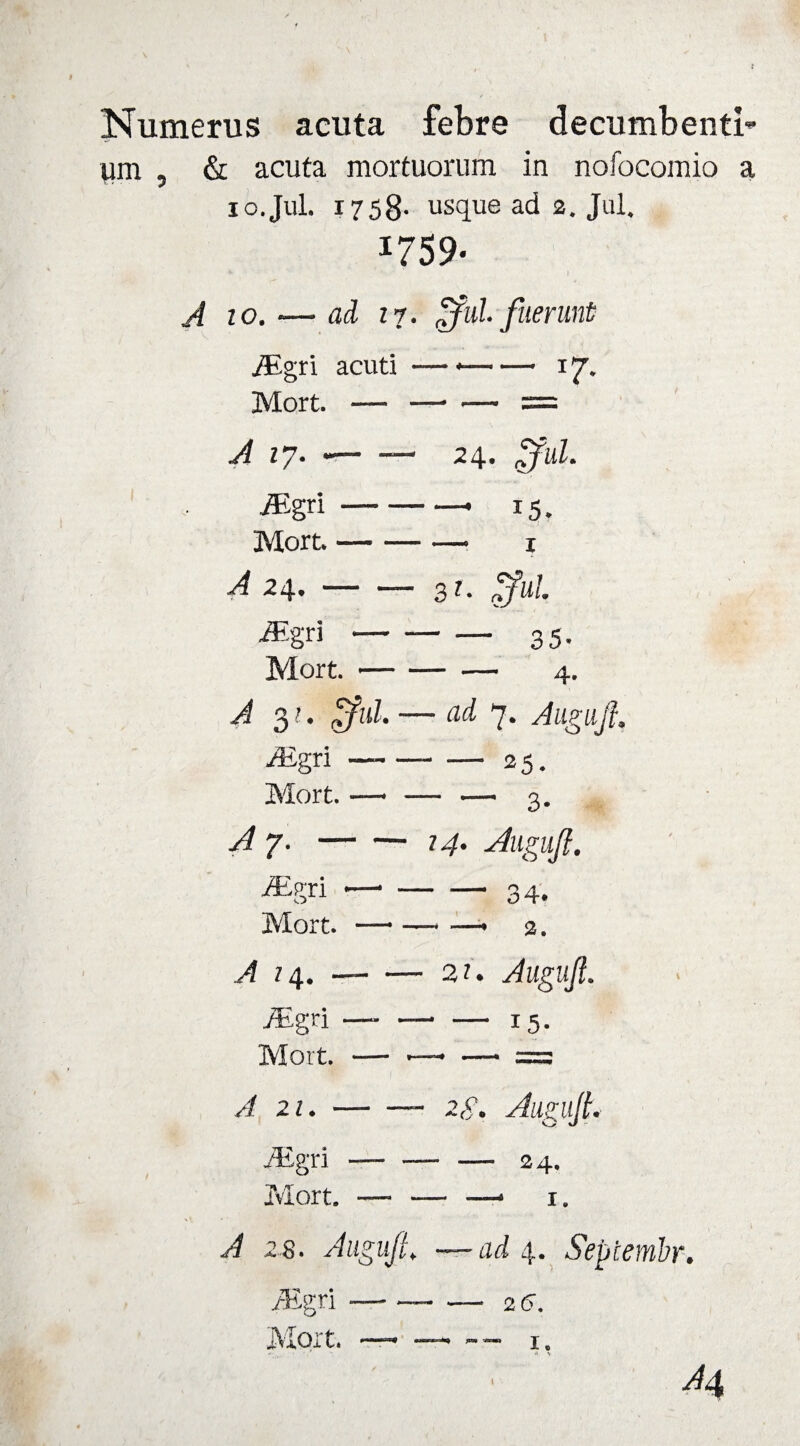 Numerus acuta febre decumbenti-
um , & acuta mortuorum in noſocomio a
10. Jul. 1758. usque ad 2. Jul.
1759.
A 10. — ad 17. Jul. fuerunt
Ægri acuti — — — 17.
Mort. — — — =
A 17. — — 24. Jul.
Ægri — — — 15.
Mort. — — — 1
A 24. — — 31. Jul.
Ægri — — — 35.
Mort. — — — 4.
A 31. Jul. — ad 7. Auguſt.
Ægri — — — 25.
Mort. — — — 3.
A 7. — — 14. Auguſt.
Ægri — — — 34.
Mort. — — — 2.
A 14. — — 21. Auguſt.
Ægri — — — 15.
Mort. — — — =
A 21. — — 28. Auguſt.
Ægri — — — 24.
Mort. — — — 1.
A 28. Auguſt. — ad 4. Septembr.
Ægri — — — 26.
Mort. — — — 1.
A4